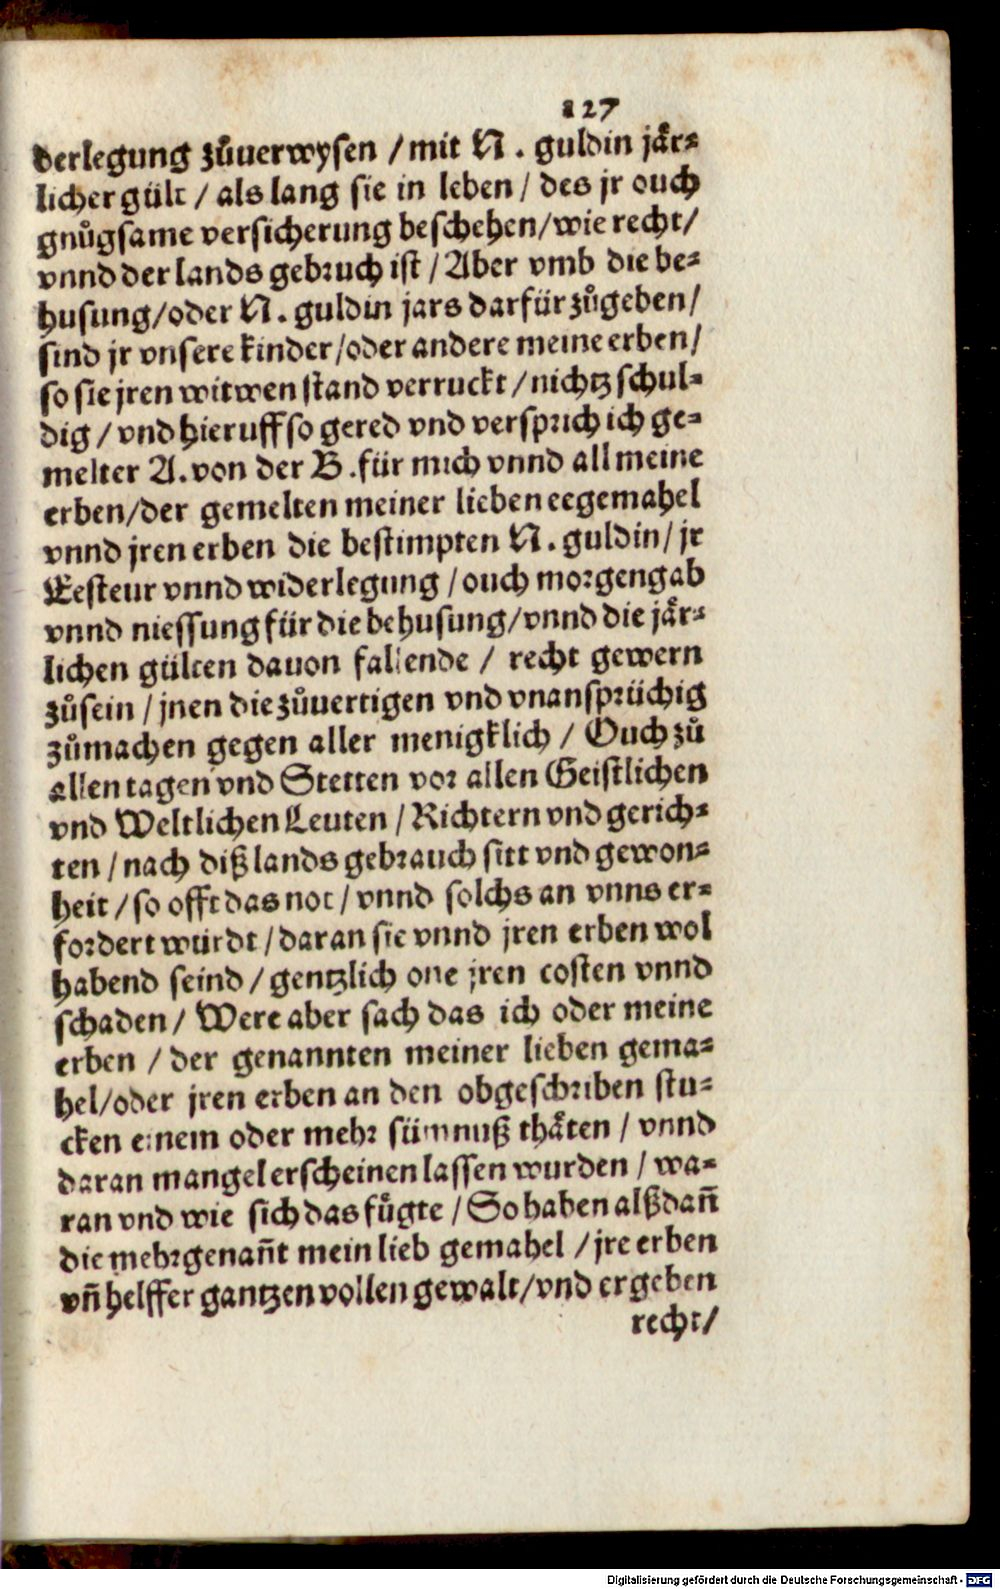 127
derlegung zůuerwysen / mit N. guldin jår⸗
licher gült / als lang sie in leben / des jr ouch
gnůgsame versicherung beschehen / wie recht /
vnnd der lands gebruch ist / Aber vmb die be⸗
husung / oder N. guldin jars darfür zůgeben /
sind jr vnsere kinder / oder andere meine erben /
so sie jren witwen stand verruckt / nichtz schul⸗
dig / vnd hieruff so gered vnd versprich ich ge⸗
melter A. von der B. für mich vnnd all meine
erben / der gemelten meiner lieben eegemahel
vnnd jren erben die bestimpten N. guldin / jr
Eesteur vnnd widerlegung / ouch morgengab
vnnd niessung für die behusung / vnnd die jår⸗
lichen gülten dauon fallende / recht gewern
zůsein / jnen die zůuertigen vnd vnansprüchig
zůmachen gegen aller menigklich / Ouch zů
allen tagen vnd Stetten vor allen Geistlichen
vnd Weltlichen Leuten / Richtern vnd gerich⸗
ten / nach diß lands gebrauch sitt vnd gewon⸗
heit / so offt das not / vnnd solchs an vnns er⸗
fordert würdt / daran sie vnnd jren erben wol
habend seind / gentzlich one jren costen vnnd
schaden / Were aber sach das ich oder meine
erben / der genannten meiner lieben gema⸗
hel / oder jren erben an den obgeschriben stu⸗
cken einem oder mehr sümnuß thåten / vnnd
daran mangel erscheinen lassen wurden / wa⸗
ran vnd wie sich das fůgte / So haben alßdañ
die mehrgenañt mein lieb gemahel / jre erben
vñ helffer gantzen vollen gewalt / vnd ergeben
recht /
Digitalisierung gefördert durch die Deutsche Forschungsgemeinschaft - DFG